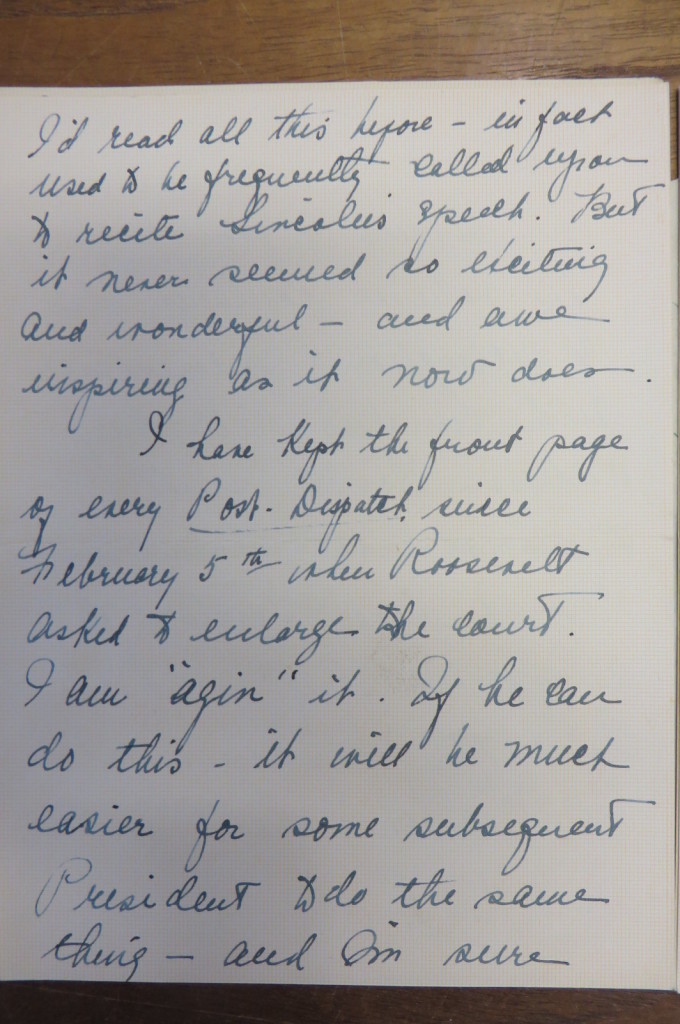 I'd read all this before – in fact
used to be frequently called upon
to recite Lincoln's speech. But
it never seemed so exciting
and wonderful – and awe
inspiring as it now does.
I have kept the front page
of every Post-Dispatch since
February 5th when Roosevelt
asked to enlarge the court.
I am "agin" it. If he can
do this – it will be much
easier for some subsequent
President to do the same
thing – and I'm sure